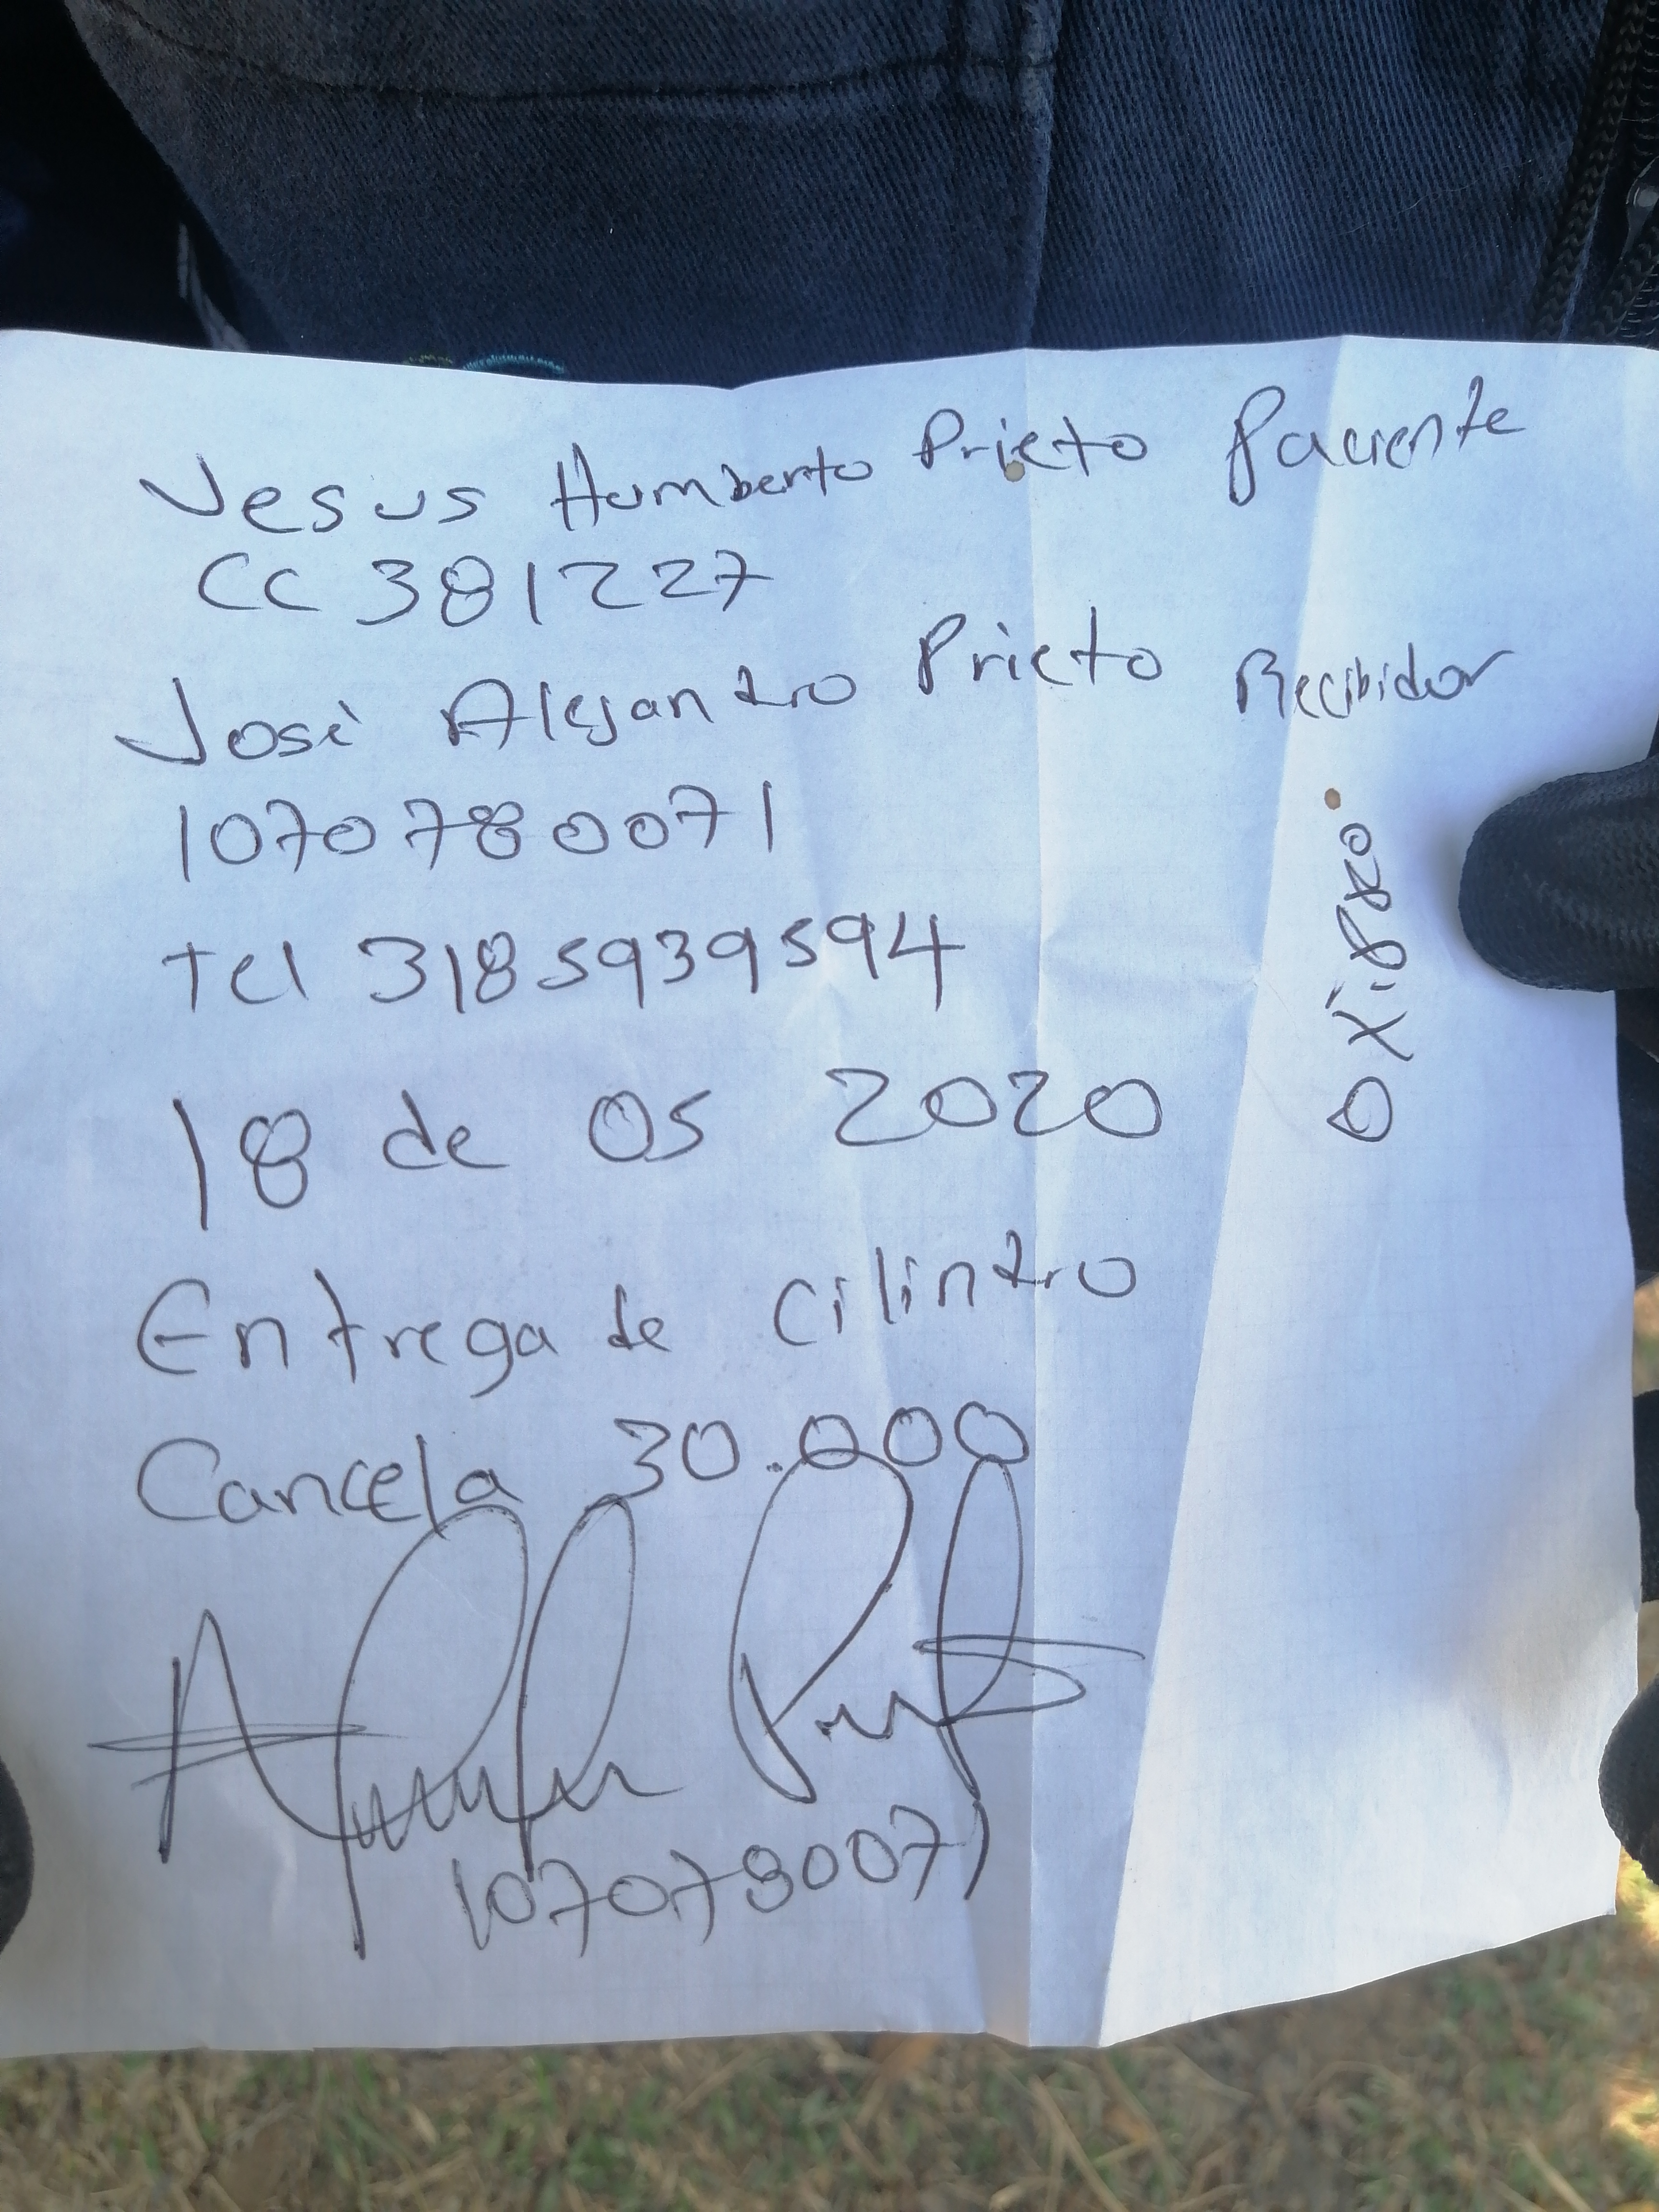 Jesus Humberto Prieto Paciente
CC 381227
José Alejandro Prieto Recibidor
1070780071
Tel 3185939594
18 de 05 2020
Entrega de cilindro
Cancela 30.000
1070780071